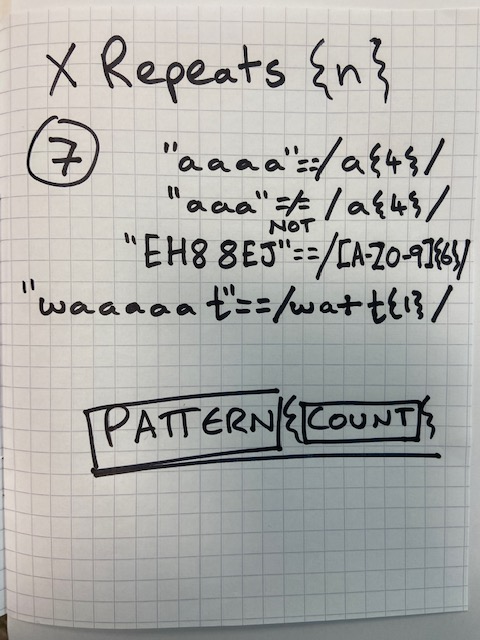 X Repeats {n}
7
"aaaa"==/a{4}/
"aaa"=/=/a{4}/
NOT
"EH8 8EJ"==/[A-Z0-9]{6}/
"waaaaat"==/wa+t{1}/
PATTERN{COUNT}